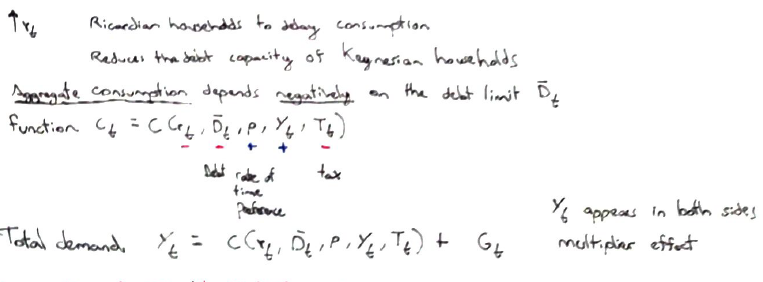 ↑ r_t Ricardian households to delay consumption
Reduces the debt capacity of Keynesian households
Aggregate consumption depends negatively on the debt limit D̄_t
function C_t = C(r_t, D̄_t, ρ, Y_t, T_t)
- - + + -
Debt rate of time preference tax
Y_t appears in both sides
Total demand Y_t = C(r_t, D̄_t, ρ, Y_t, T_t) + G_t multiplier effect